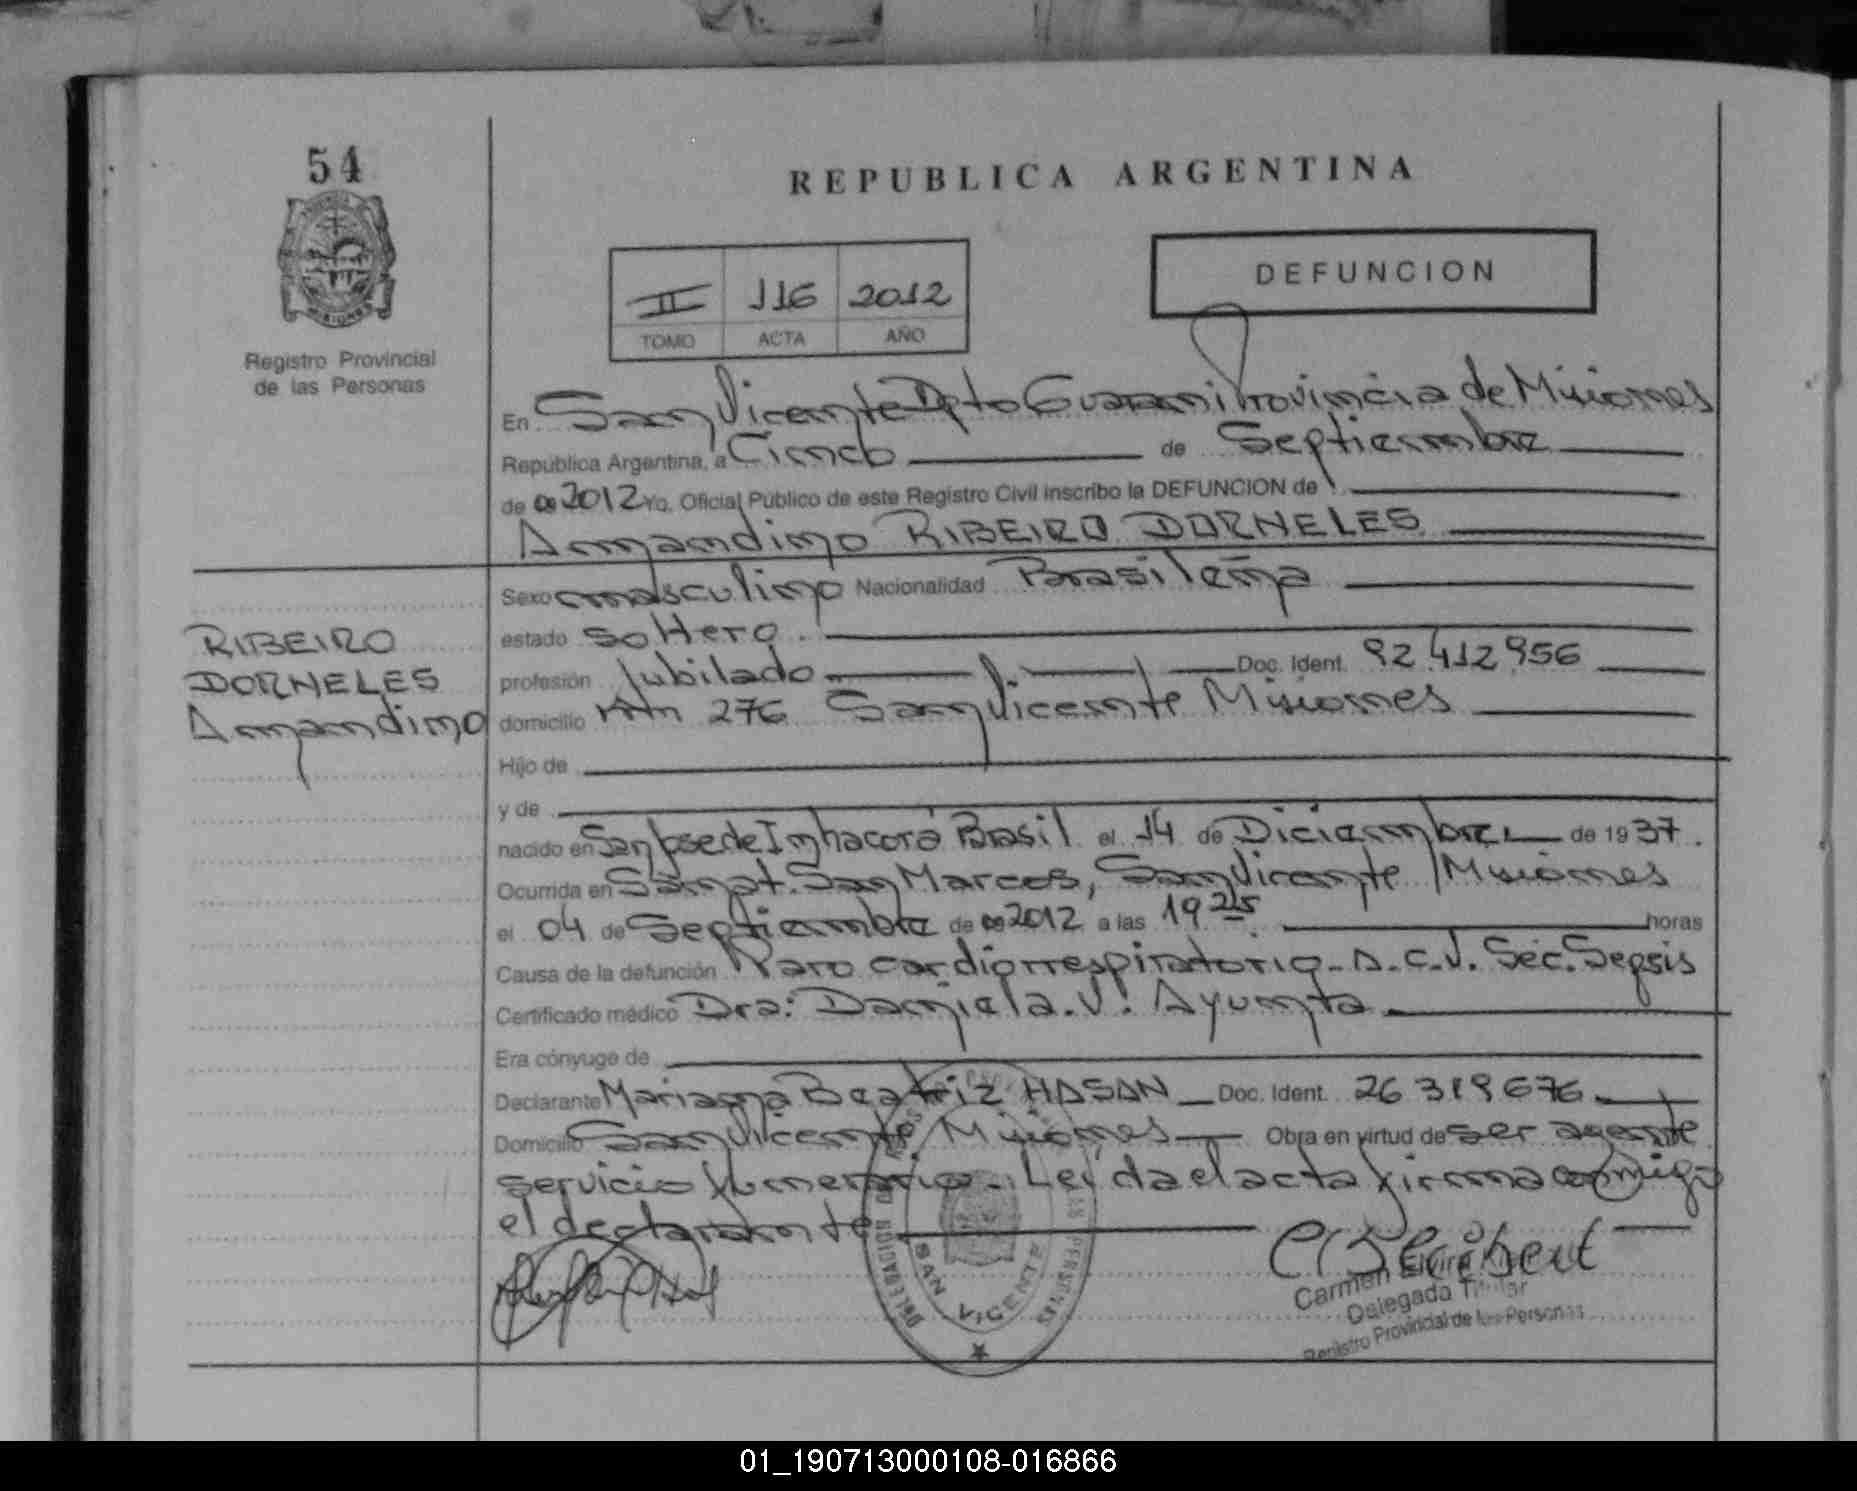 54
REPUBLICA ARGENTINA
MISIONES
Registro Provincial
de las Personas
II 116 2012
TOMO ACTA AÑO
DEFUNCION
En San Vicente Dpto Guarani Provincia de Misiones
República Argentina, a Cinco de Septiembre
de 2012 Yo, Oficial Público de este Registro Civil inscribo la DEFUNCION de
Armandino RIBEIRO DORNELES
RIBEIRO
DORNELES
Armandino
Sexo masculino Nacionalidad Brasileña
estado soltero.
profesión Jubilado Doc. Ident. 92.412.956
domicilio Km 276 San Vicente Misiones
Hijo de
y de
nacido en San Jose de Inhacorá Brasil el 14 de Diciembre de 1937.
Ocurrida en Sanat. San Marcos, San Vicente Misiones
el 04 de Septiembre de 2012 a las 19 25 horas
Causa de la defunción Paro cardiorrespiratorio - A.C.V. Sec. Sepsis
Certificado médico Dra: Daniela. V. Ayunta
Era cónyuge de
Declarante Mariana Beatriz HASAN Doc. Ident. 26 319 676
Domicilio San Vicente Misiones Obra en virtud de ser agente
servicio funerario. Leída el acta firma conmigo
el declarante
DELEGACION DE PERSONAS
SAN VICENTE
Carmen
Delegada Titular
Registro Provincial de las Personas
01_190713000108-016866